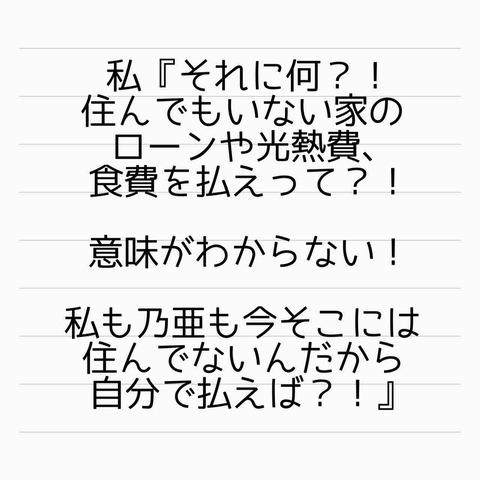 私『それに何？！
住んでもいない家の
ローンや光熱費、
食費を払えって？！
意味がわからない！
私も乃亜も今そこには
住んでないんだから
自分で払えば？！』